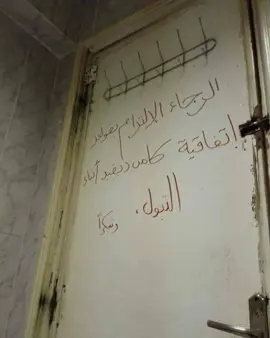 الرجاء الإلتزام بقواعد
إتفاقية كامب ديفيد أثناء
التبول. وشكراً